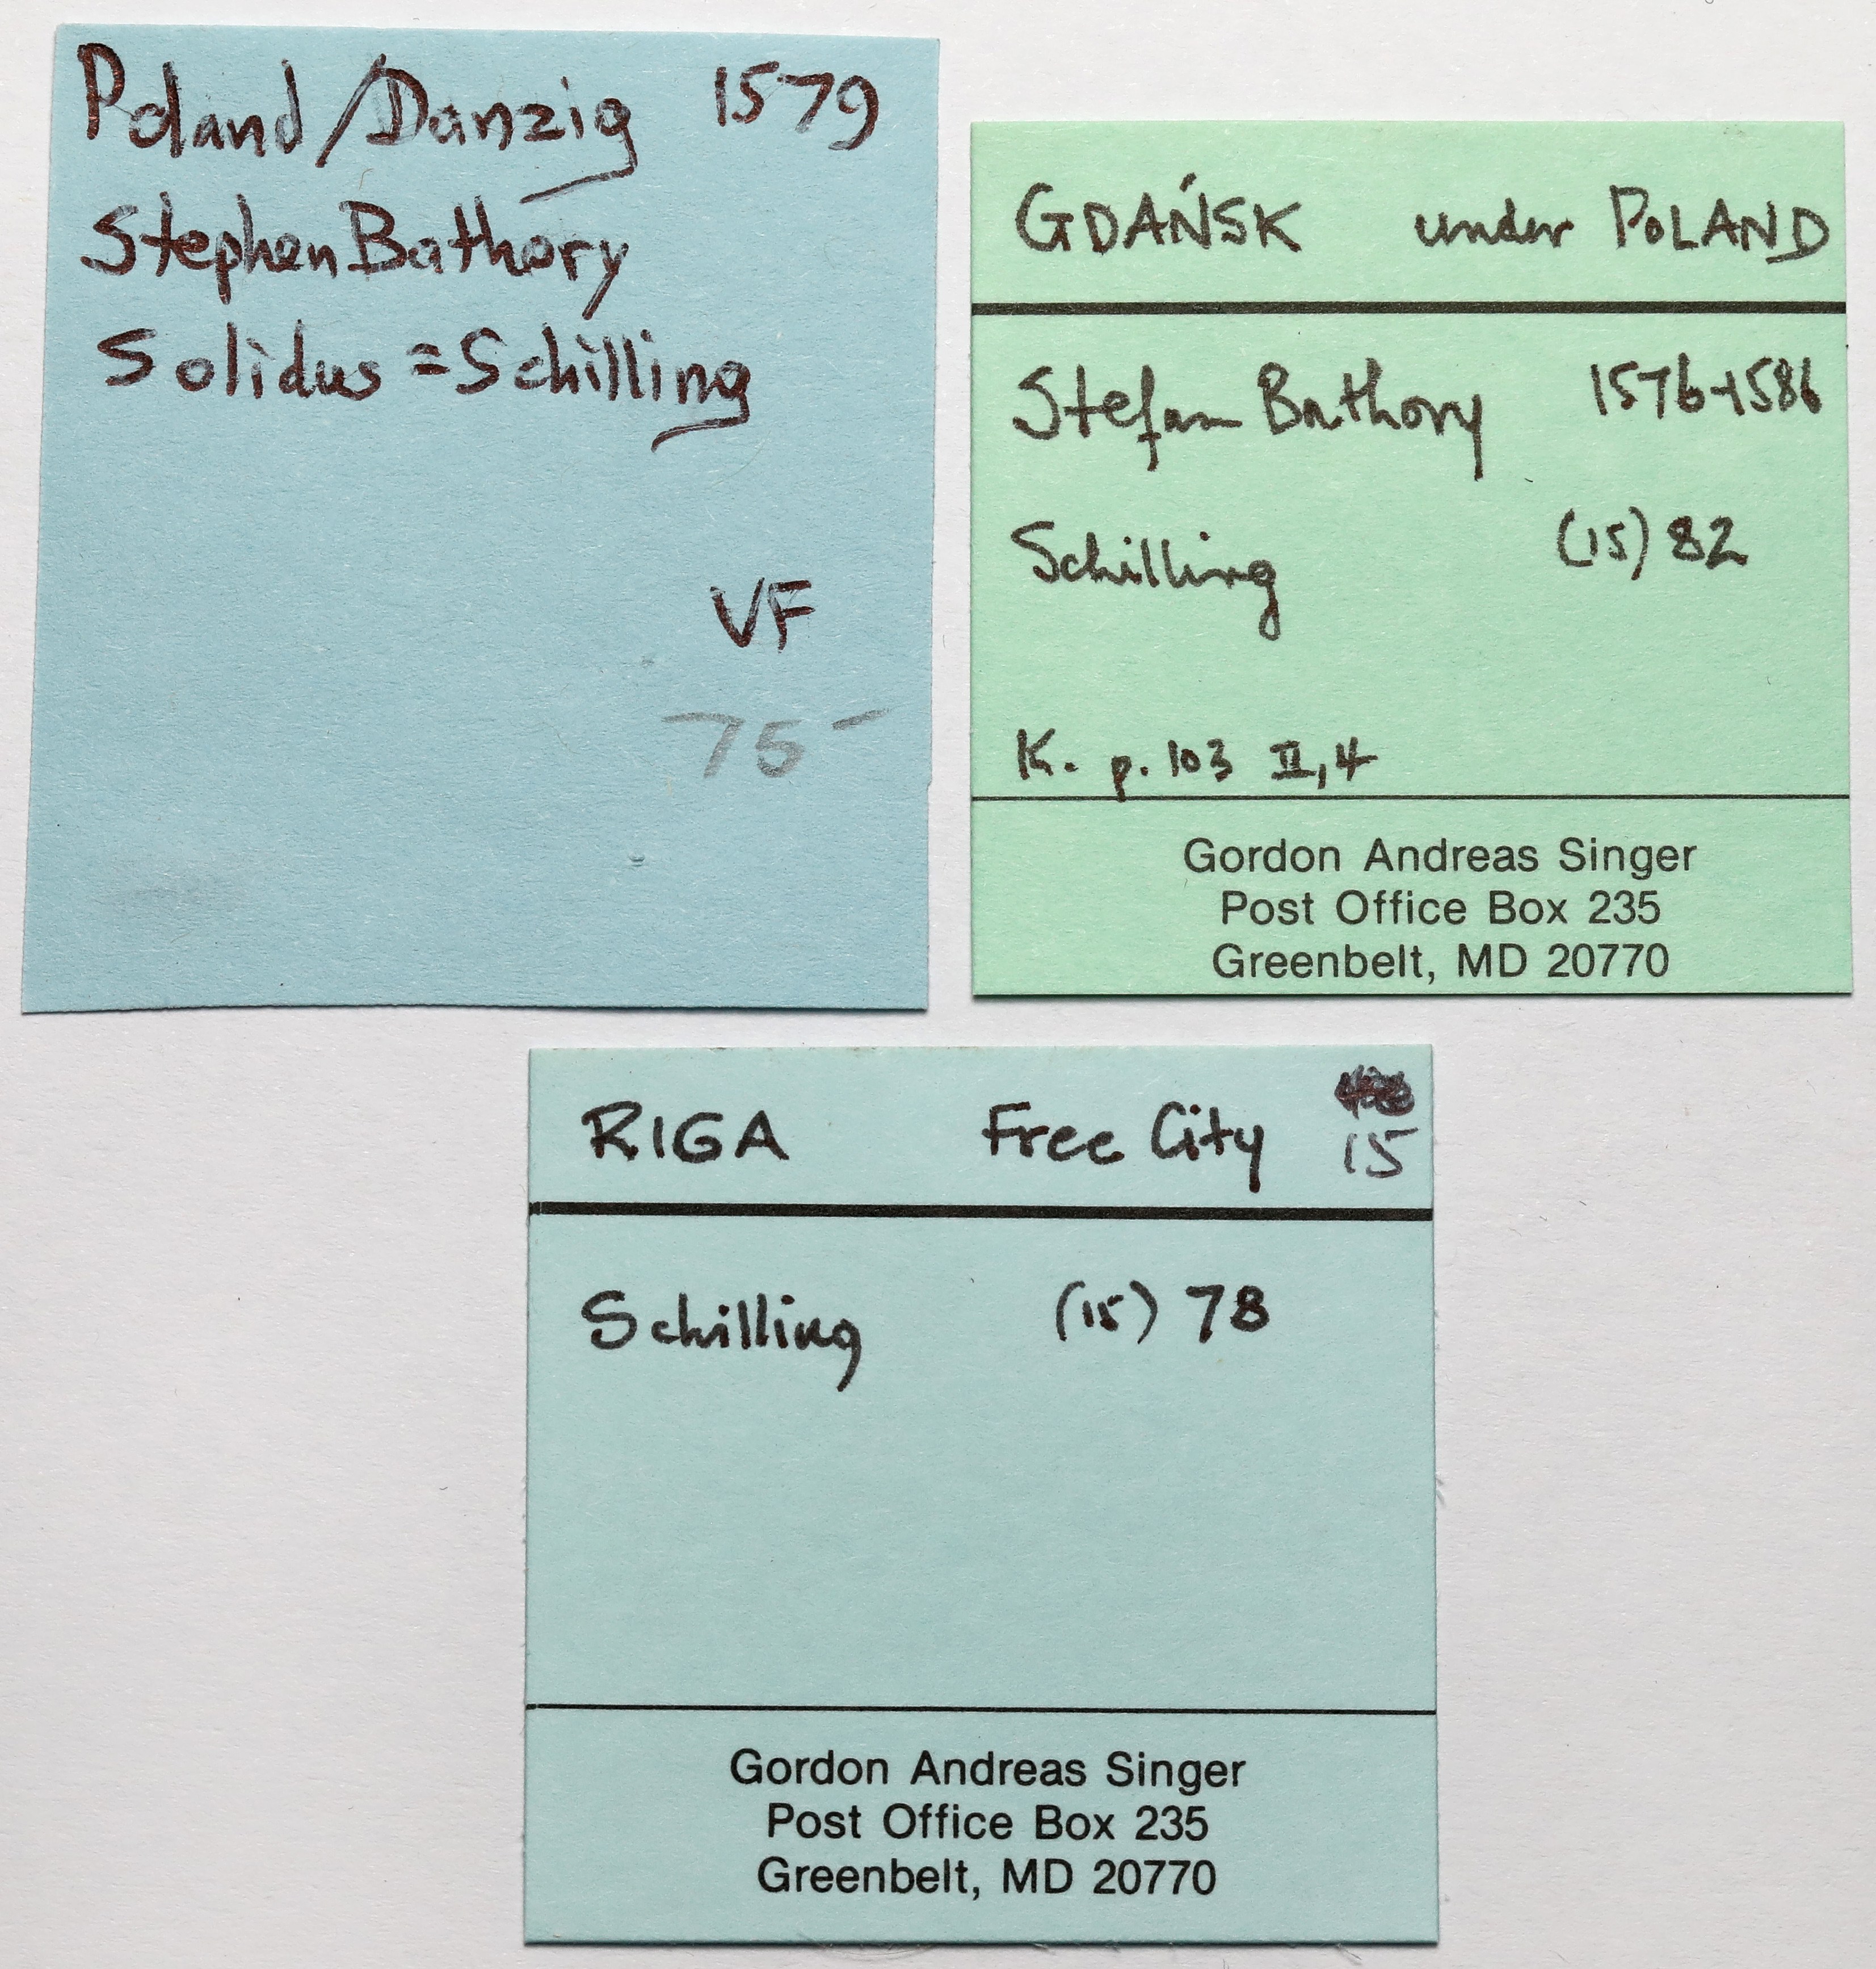 Poland/Danzig 1579
Stephen Bathory
Solidus = Schilling
VF
75-
GDAŃSK under POLAND
Stefan Bathory 1576-1586
Schilling (15) 82
K. p. 103 II, 4
Gordon Andreas Singer
Post Office Box 235
Greenbelt, MD 20770
RIGA Free City 15
Schilling (15) 78
Gordon Andreas Singer
Post Office Box 235
Greenbelt, MD 20770